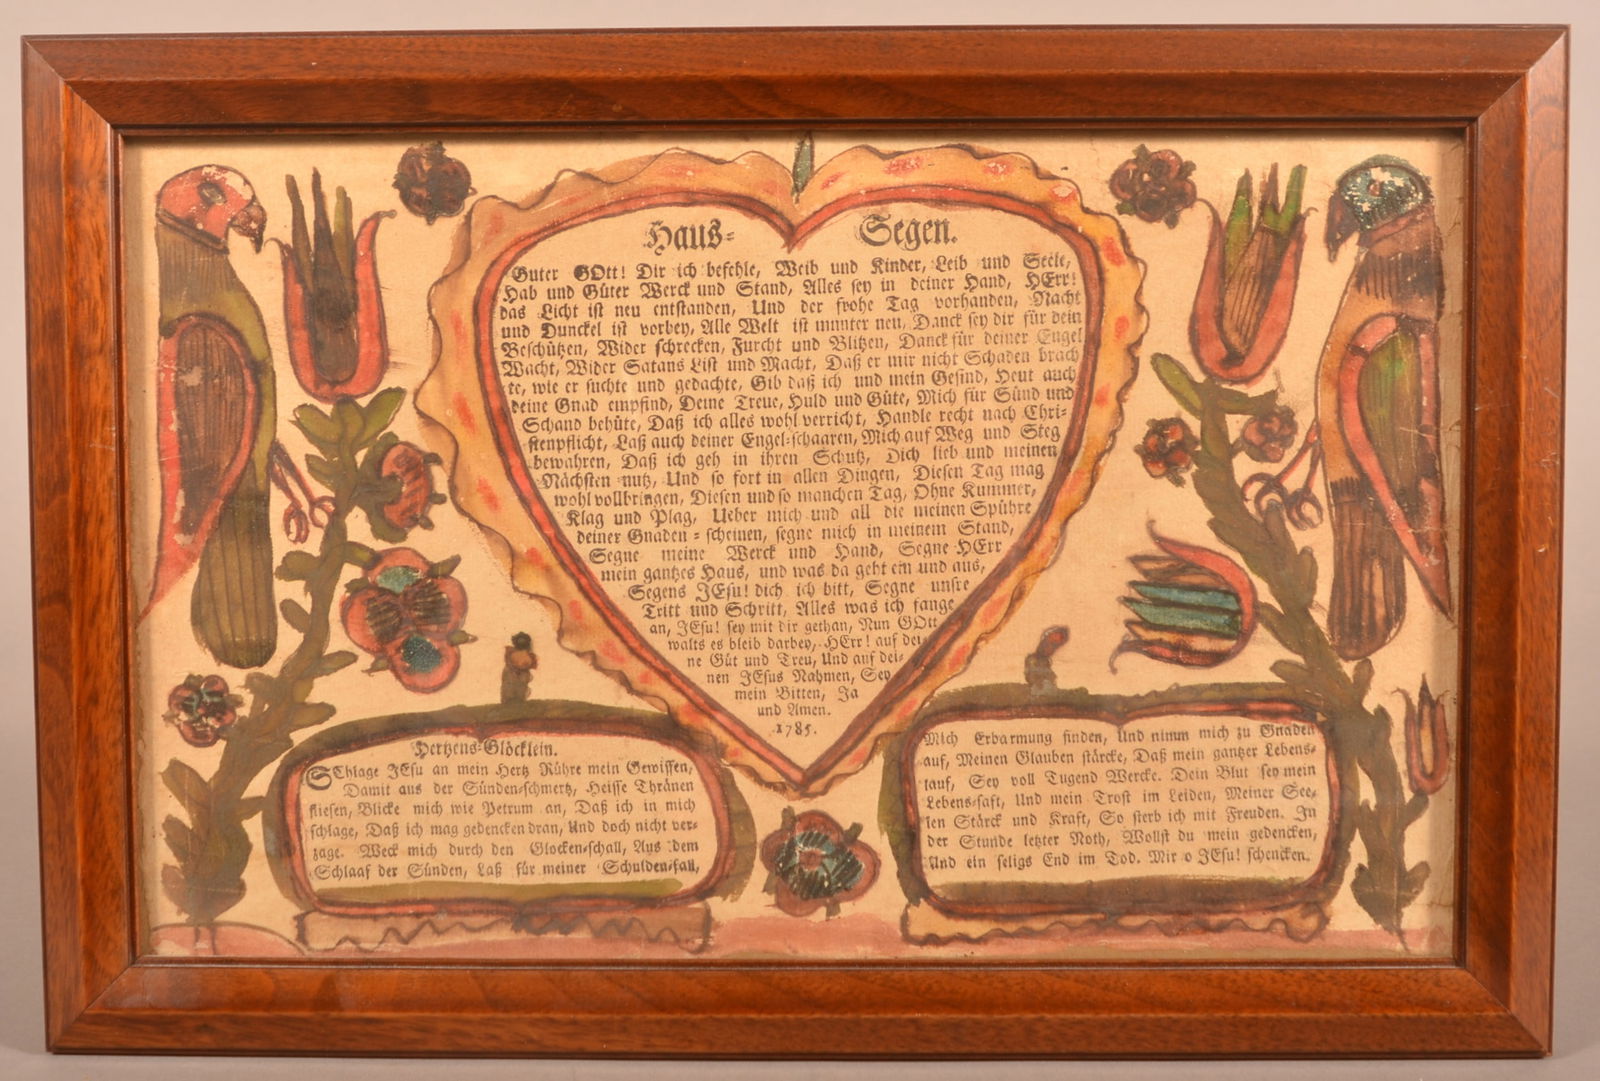 Haus- Segen.
Guter GOtt! Dir ich befehle, Weib und Kinder, Leib und Seele,
Hab und Güter Werck und Stand, Alles sey in deiner Hand, HErr!
das Licht ist neu entstanden, Und der frohe Tag vorhanden, Nacht
und Dunckel ist vorbey, Alle Welt ist munter neu, Danck sey dir für dein
Beschützen, Wider schrecken, Furcht und Blitzen, Danck für deiner Engel
Wacht, Wider Satans List und Macht, Daß er mir nicht Schaden brach
te, wie er suchte und gedachte, Gib daß ich und mein Gesind, Heut auch
deine Gnad empfind, Deine Treue, Huld und Güte, Mich für Sünd und
Schand behüte, Daß ich alles wohl verricht, Handle recht nach Chri-
stenpflicht, Laß auch deiner Engel-schaaren, Mich auf Weg und Steg
bewahren, Daß ich geh in ihren Schutz, Dich lieb und meinen
Nächsten nutz, Und so fort in allen Dingen, Diesen Tag mag
wohl vollbringen, Diesen und so manchen Tag, Ohne Kummer,
Klag und Plag, Ueber mich und all die meinen Spühre
deiner Gnaden-scheinen, segne mich in meinem Stand,
Segne meine Werck und Hand, Segne HErr
mein gantzes Haus, und was da geht ein und aus,
Segens JEsu! dich ich bitt, Segne unsre
Tritt und Schritt, Alles was ich fange
an, JEsu! sey mit dir gethan, Nun GOtt
walts es bleib darbey, HErr! auf dei-
ne Güt und Treu, Und auf dei-
nen JEsus Nahmen, Sey
mein Bitten, Ja
und Amen.
1785.
Hertzens-Glöcklein.
SChlage JEsu an mein Hertz Rühre mein Gewissen,
Damit aus der Sünden-schmertz, Heisse Thränen
fliesen, Blicke mich wie Petrum an, Daß ich in mich
schlage, Daß ich mag gedencken dran, Und doch nicht ver-
zage. Weck mich durch den Glocken-schall, Aus dem
Schlaaf der Sünden, Laß für meiner Schulden-fall,
Mich Erbarmung finden, Und nimm mich zu Gnaden
auf, Meinen Glauben stärcke, Daß mein gantzer Lebens-
lauf, Sey voll Tugend Wercke. Dein Blut sey mein
Lebens-saft, Und mein Trost im Leiden, Meiner See-
len Stärck und Kraft, So sterb ich mit Freuden. In
der Stunde letzter Noth, Wollst du mein gedencken,
Und ein seligs End im Tod. Mir o JEsu! schencken.